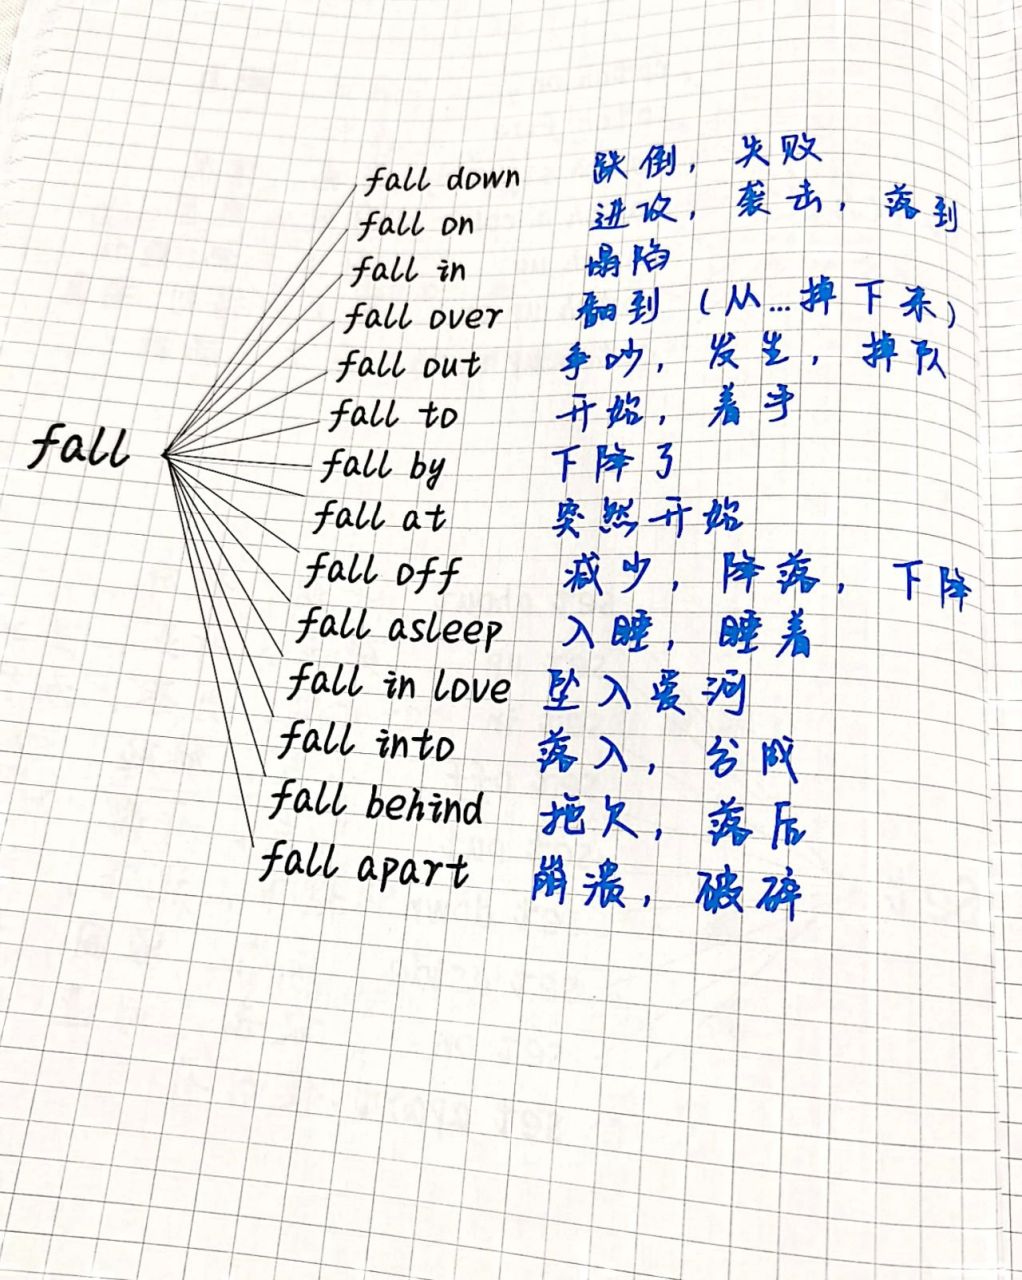 fall
fall down 跌倒，失败
fall on 进攻，袭击，落到
fall in 塌陷
fall over 翻到（从...掉下来）
fall out 争吵，发生，掉队
fall to 开始，着手
fall by 下降了
fall at 突然开始
fall off 减少，降落，下降
fall asleep 入睡，睡着
fall in love 坠入爱河
fall into 落入，分成
fall behind 拖欠，落后
fall apart 崩溃，破碎